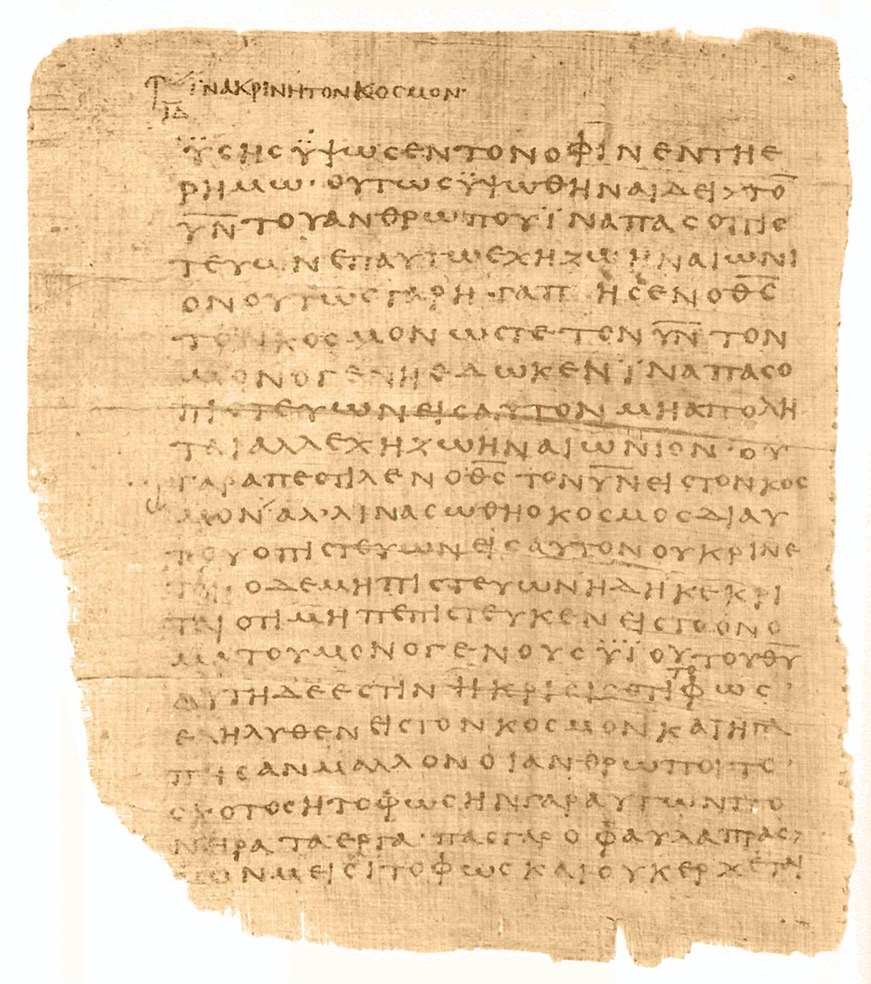 ϊνακρινητονκοσμον
ιδ
ϋσησϋψωσεντονοφινεντηε
ρημω·ουτωσϋψωθηναιδει>το
υ̅ν̅τουανθρωπουϊναπασοπιε
τευωνεπαυτωεχηζωηναιωνι
ονουτωσγαρη·γαπησενοθ̅σ̅
τονκοσμονωστετονυ̅ν̅τον
μονογενηεδωκενϊναπασο
πιστευωνεισαυτονμηαπολη
ταιαλλεχηζωηναιωνιον·ου
γαραπεστιλενοθ̅σ̅τονυ̅ν̅εισ τονκοσ
μοναλ·λινασωθηοκοσμοσδιαυ
τουοπιστευωνεισαυτονουκρινε
ταιοδεμηπιστευωνηδηκεκρι
ταιοτιμηπεπιστευκενεισ τοονο
ματουμονογενουσϋϊουτουθ̅υ̅
αυτηδεεστινηκρισισοτιτοφωσ
εληλυθενειστονκοσμονκαιηγα
πησανμαλλονοιανθρωποιτο
σκοτοσητοφωσηνγαραυτωνπο
νηραταεργα·πασγαροφαυλαπρασ>
σονμεισιτοφωσκαιουκερχεται